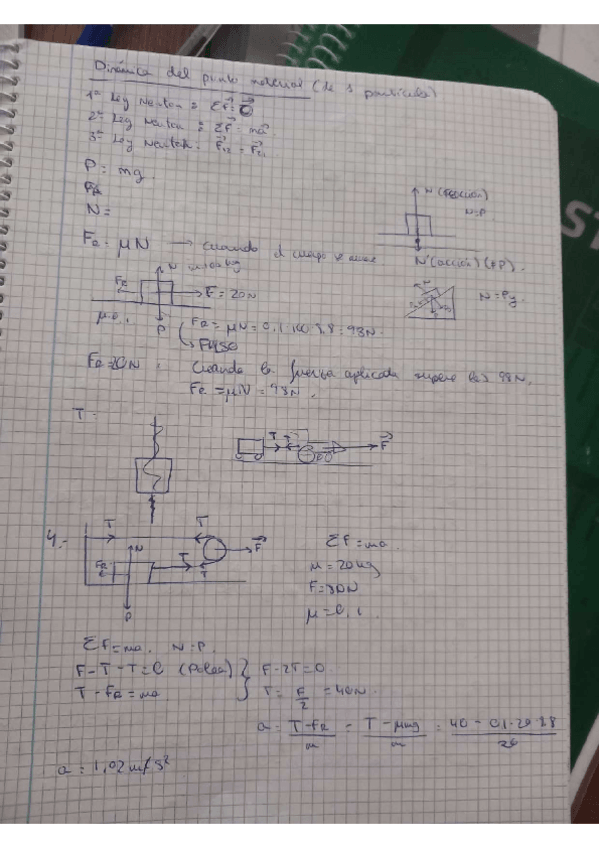 Dinámica del punto material (de 1 partícula)
1ª Ley Newton: ΣF⃗ = 0⃗
2ª Ley Newton: ΣF⃗ = ma⃗
3ª Ley Newton: F⃗₁₂ = F⃗₂₁
P = mg
FR
N =
N (reacción)
N=P
N'(acción) (≠P).
FR = μN → cuando el cuerpo se mueve
N m=100kg
FR
F⃗ = 20N
μ=0,1
P
N = Py
FR = μN = 0,1·100·9,8 = 98N
↳ FALSO
FR = 20N. Cuando la fuerza aplicada supere los 98N,
FR = μN = 98N.
T:
T T F⃗
4.-
T T
N
FR
T
T
F⃗
P
ΣF = ma
M = 20kg
F = 80N
μ = 0,1
ΣF = ma. N=P.
F - T - T = 0 (Polea)
T - FR = ma
F - 2T = 0
T = F/2 = 40N
a = T-FR/m = T-μmg/m = 40 - 0,1·20·9,8/20
a = 1,02 m/s²